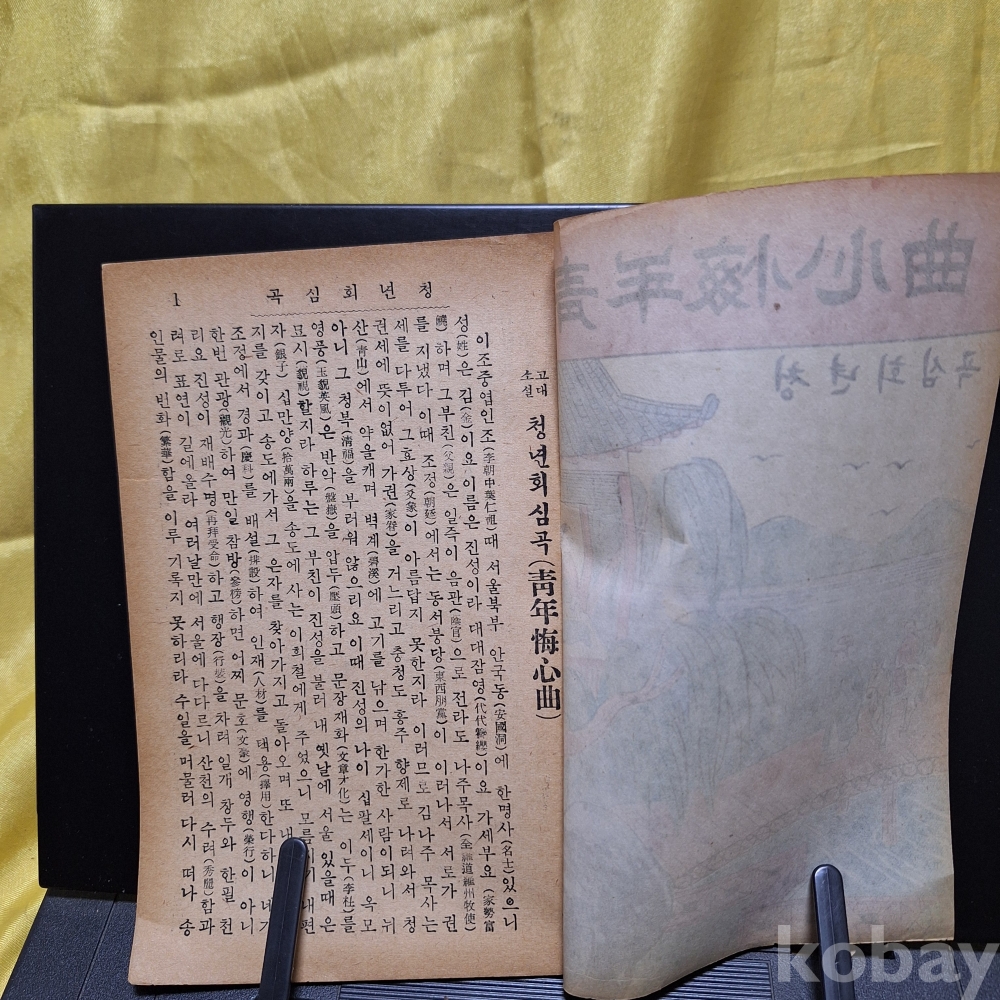 청년회심곡
1
고대소설 청년회심곡(靑年悔心曲)
이조중엽인조(李朝中葉仁祖)때 서울북부 안국동(安國洞)에 한명사(名士)있으니
성(姓)은 김(金)이요 이름은 진성이라 대대잠영(代代簪纓)이요 가세부요(家勢富
饒)하며 그부친(父親)은 일즉이 음관(蔭官)으로 전라도 나주목사(全羅道羅州牧使)
를 지냈다 이때 조정(朝廷)에서는 동서붕당(東西朋黨)이 이러나서 서로가 권
세를 다투어 그효상(爻象)이 아름답지 못한지라 이러므로 김나주 목사는
권세에 뜻이없어 가권(家眷)을 거느리고 충청도 홍주 향제로 나려와서 청
산(靑山)에서 약을캐며 벽계(碧溪)에 고기를 낚으며 한가한 사람이되니 뉘
아니 그 청복(清福)을 부러워 않으리요 이때 진성의 나이 십팔세이니 옥모
영풍(玉貌英風)은 반악(盤嶽)을 압두(壓頭)하고 문장재화(文章才化)는 이두(李杜)를
묘시(藐視)할지라 하루는 그 부친이 진성을 불러 내 옛날에 서울 있을때 은
자(銀子) 십만양(拾萬兩)을 송도에 사는 이희철에게 주었으니 내편
지를 갖이고 송도에가서 그 은자를 찾아가지고 돌아오며 또 내
조정에서 경과(慶科)를 배설(排設)하여 인재(人材)를 택용(擇用)한다하니 네가
한번 관광(觀光)하여 만일 참방(參榜)하면 어찌 문호(文豪)에 영행(榮行)이 아니
리요 진성이 재배수명(再拜受命)하고 행장(行裝)을 차려 일개 창두와 한필 천
려로 표연이 길에올라 여러날만에 서울에 다다르니 산천의 수려(秀麗)함과
인물의 번화(繁華)함을 이루 기록지 못하리라 수일을 머물러 다시 떠나 송
靑年悔心曲
청년회심곡
kobay